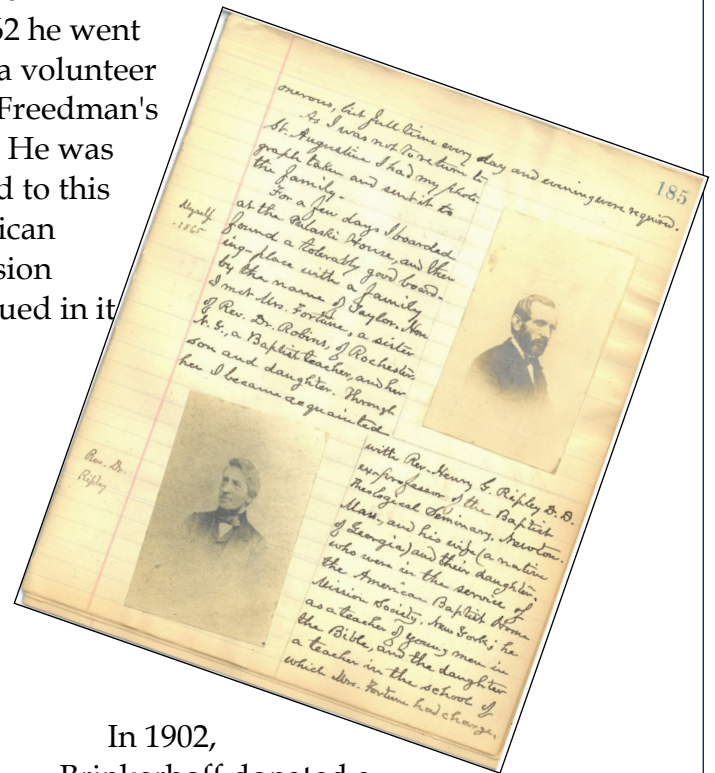 62 he went
a volunteer
Freedman's
He was
d to this
ican
sion
ued in it
185
merous, but full time every day and evening were required.
As I was not to return to
St. Augustine I had my photo-
graph taken and sent it to
the family.
For a few days I boarded
at the Pulaski House, and then
found a tolerably good board-
ing-place with a family
by the name of Taylor. Here
I met Mrs. Fortune, a sister
of Rev. Dr. Robins, of Rochester,
N.Y., a Baptist teacher, and her
son and daughter. Through
her I became acquainted
Myself
1865
with Rev. Henry J. Ripley D.D.
ex-professor of the Baptist
Theological Seminary, Newton.
Mass., and his wife (a native
of Georgia) and their daughter.
who were in the service of
the American Baptist Home
Mission Society, New York; he
as a teacher of young men in
the Bible, and the daughter
a teacher in the school of
which Mrs. Fortune had charge.
Rev. Dr.
Ripley
In 1902,
Brinkerhoff donated a